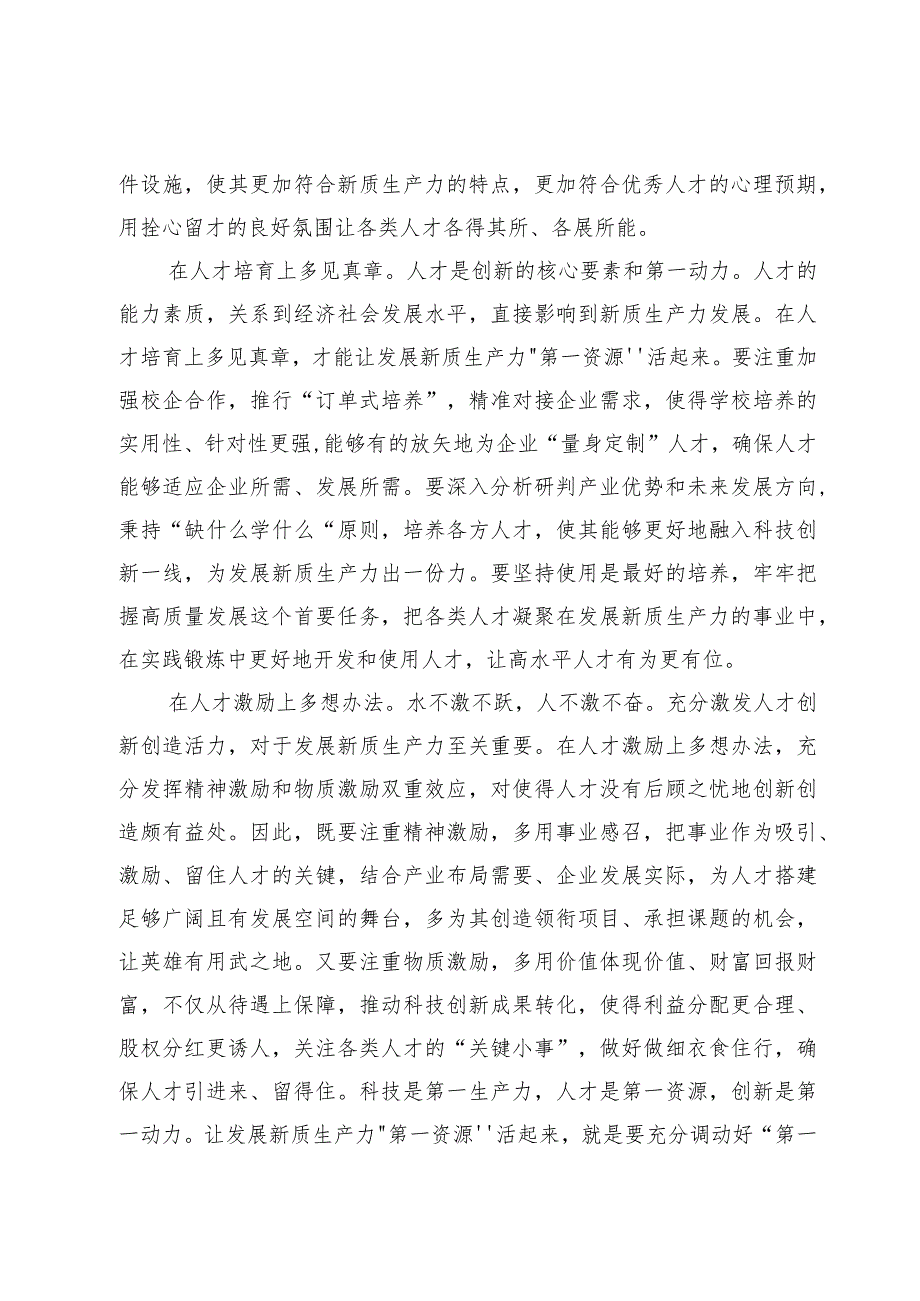 件设施，使其更加符合新质生产力的特点，更加符合优秀人才的心理预期，
用拴心留才的良好氛围让各类人才各得其所、各展所能。
在人才培育上多见真章。人才是创新的核心要素和第一动力。人才的
能力素质，关系到经济社会发展水平，直接影响到新质生产力发展。在人
才培育上多见真章，才能让发展新质生产力"第一资源''活起来。要注重加
强校企合作，推行“订单式培养”，精准对接企业需求，使得学校培养的
实用性、针对性更强,能够有的放矢地为企业“量身定制”人才，确保人才
能够适应企业所需、发展所需。要深入分析研判产业优势和未来发展方向，
秉持“缺什么学什么“原则，培养各方人才，使其能够更好地融入科技创
新一线，为发展新质生产力出一份力。要坚持使用是最好的培养，牢牢把
握高质量发展这个首要任务，把各类人才凝聚在发展新质生产力的事业中，
在实践锻炼中更好地开发和使用人才，让高水平人才有为更有位。
在人才激励上多想办法。水不激不跃，人不激不奋。充分激发人才创
新创造活力，对于发展新质生产力至关重要。在人才激励上多想办法，充
分发挥精神激励和物质激励双重效应，对使得人才没有后顾之忧地创新创
造颇有益处。因此，既要注重精神激励，多用事业感召，把事业作为吸引、
激励、留住人才的关键，结合产业布局需要、企业发展实际，为人才搭建
足够广阔且有发展空间的舞台，多为其创造领衔项目、承担课题的机会，
让英雄有用武之地。又要注重物质激励，多用价值体现价值、财富回报财
富，不仅从待遇上保障，推动科技创新成果转化，使得利益分配更合理、
股权分红更诱人，关注各类人才的“关键小事”，做好做细衣食住行，确
保人才引进来、留得住。科技是第一生产力，人才是第一资源，创新是第
一动力。让发展新质生产力"第一资源''活起来，就是要充分调动好“第一